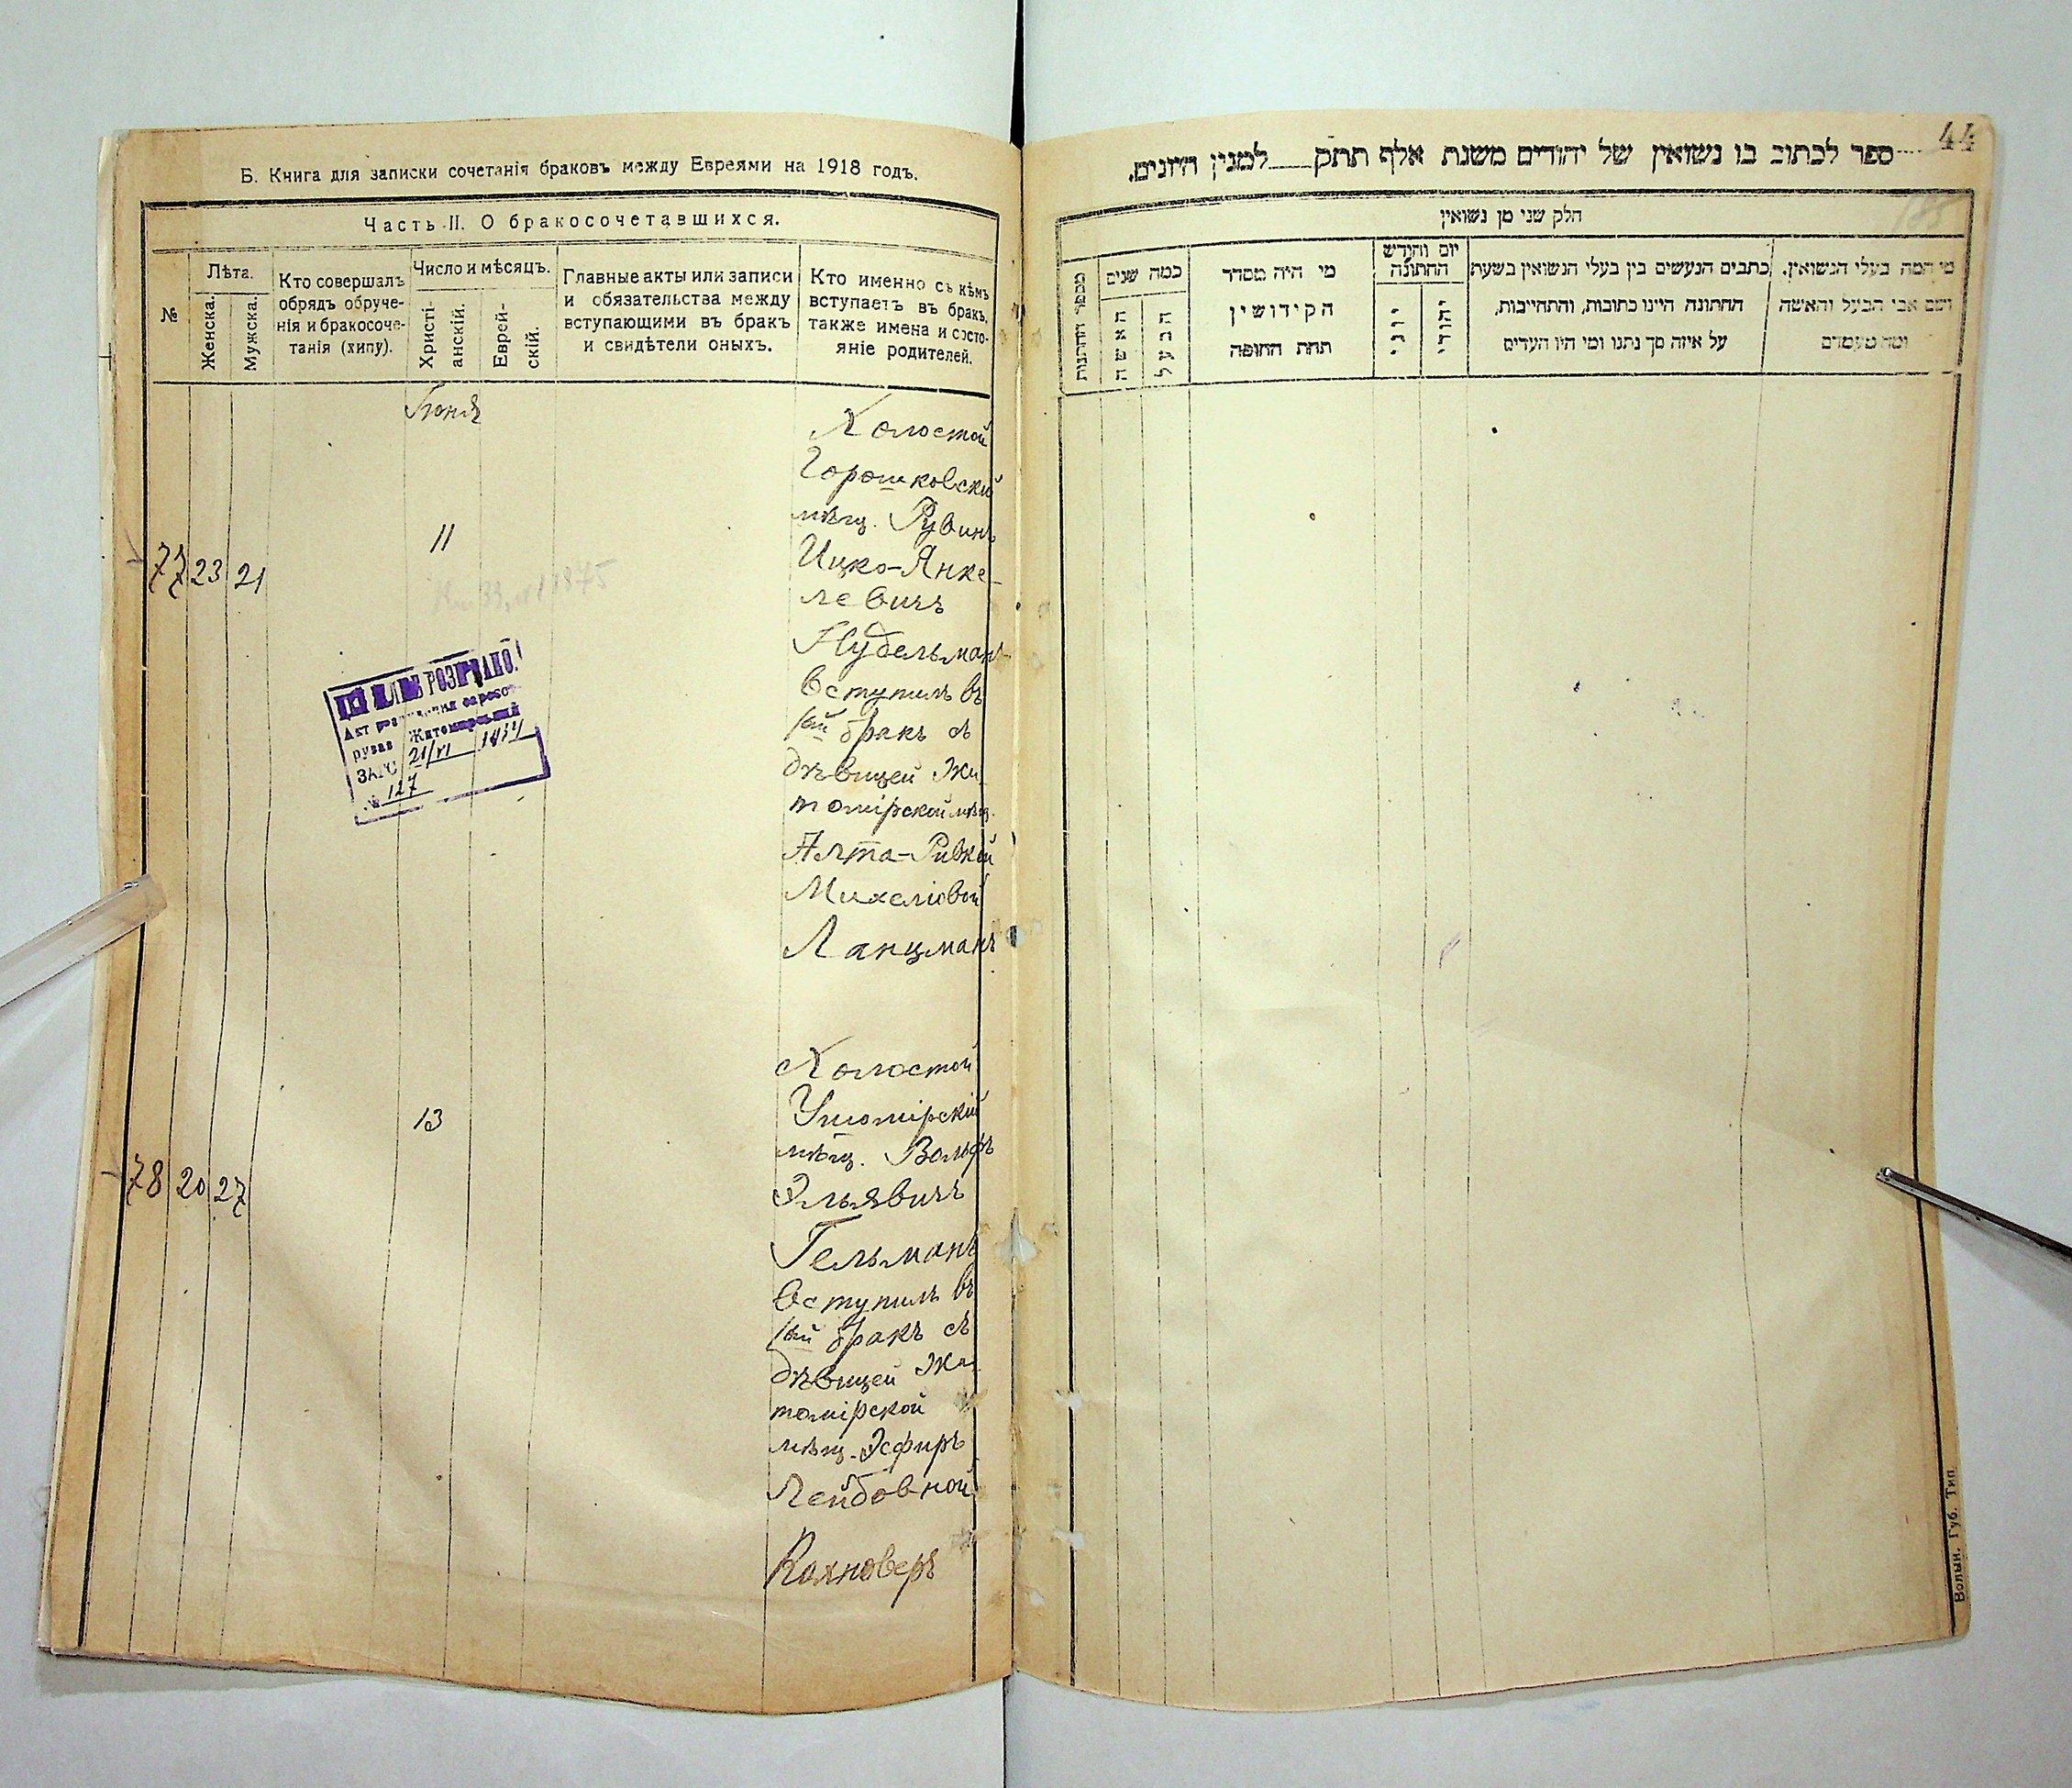 Б. Книга для записки сочетанія браковъ между Евреями на 1918 годъ.
Часть II. О бракосочетавшихся.
№
Лѣта.
Женска.
Мужска.
Кто совершалъ
обрядъ обруче-
нія и бракосоче-
танія (хипу).
Число и мѣсяцъ.
Христі-
анскій.
Еврей-
скій.
Главные акты или записи
и обязательства между
вступающими въ бракъ
и свидѣтели оныхъ.
Кто именно съ кѣмъ
вступаетъ въ бракъ,
также имена и состо-
яніе родителей.
Холостой
Горошковскій
мѣщ. Рувинъ
11
77 23 21
Ицко-Янке-
левичъ
Нудельманъ
вступилъ въ
1ый бракъ съ
дѣвицей Жи
томірской мѣщ.
Алта-Ривкой
Михелювой
Ланцманъ
РОЗІРВАНО.
Житомирський
ЗАГС 21/VI
№ 127
Холостой
13
Ушомірскій
мѣщ. Вольфъ
78 20 27
Эльявичъ
Гельманъ
вступилъ въ
1ый бракъ съ
дѣвицей Жи
томірской
мѣщ. Эсфирь
Лейбовной
Рахноверъ
44
ספר לכתוב בו נשואין של יהודים משנת אלף תתק למנין היונים.
חלק שני מן נשואין
מספר החתנות
כמה שנים
האשה
הבעל
מי היה מסדר
הקידושין
תחת החופה
יום והודש
החתונה
יוני
יהודי
כתבים הנעשים בין בעלי הנשואין בשעת
החתונה היינו כתובות, והתחייבות,
על איזה סך נתנו ומי היו העדים
מי המה בעלי הנשואין.
ושם אבי הבעל והאשה
ומה מעמדם
Волын. Губ. Тип.